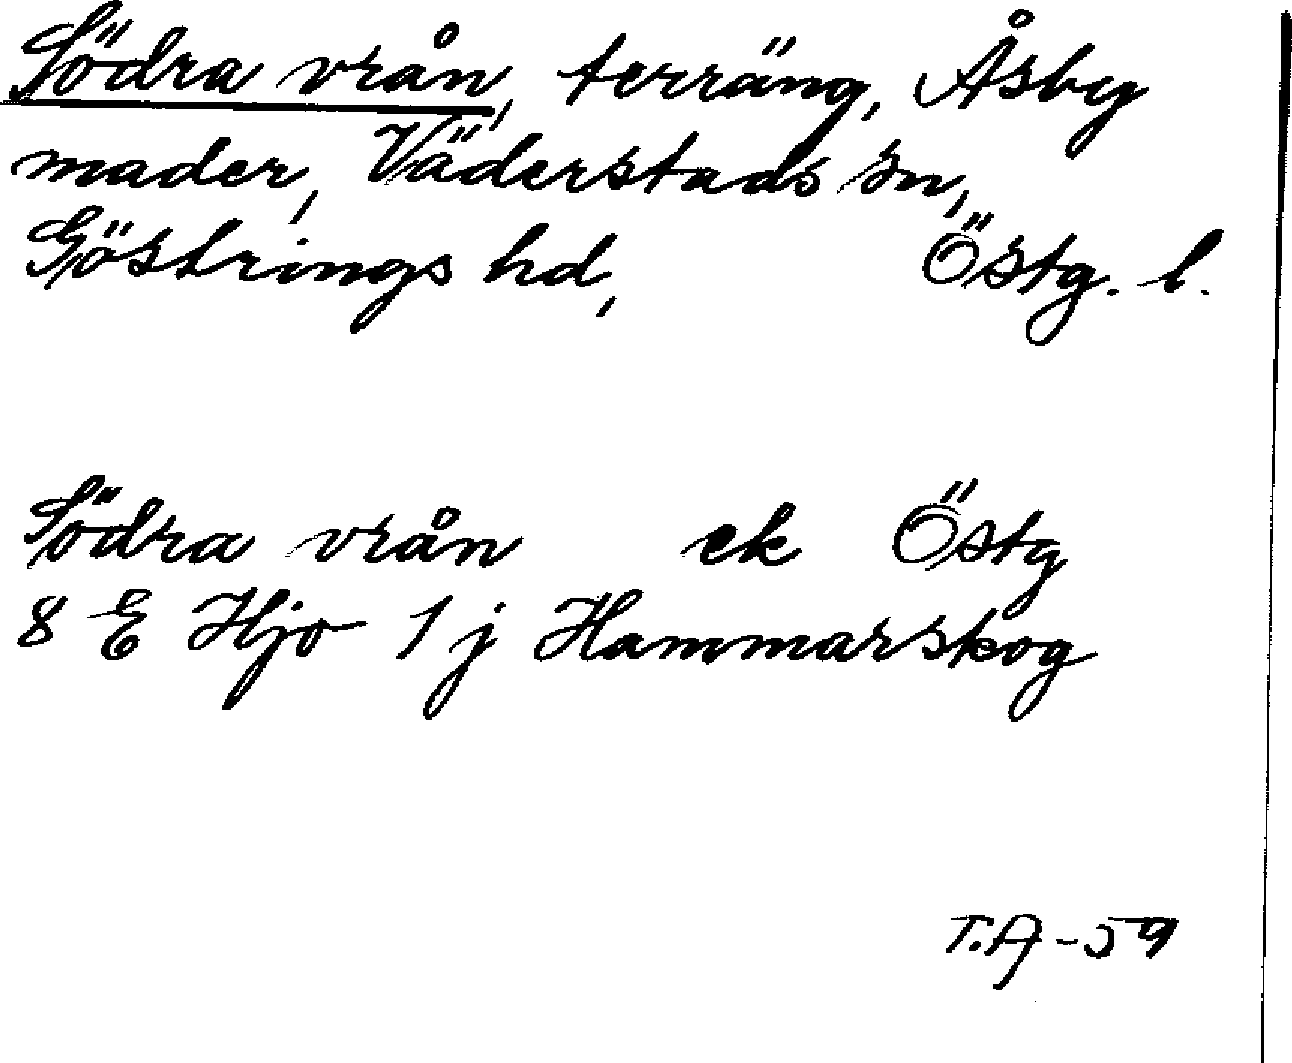 Södra vrån, terräng, Åsby
mader, Väderstads sn,
Göstrings hd, Östg. l.
Södra vrån ek Östg
8 E Hjo 1 j Hammarskog
T.A-59